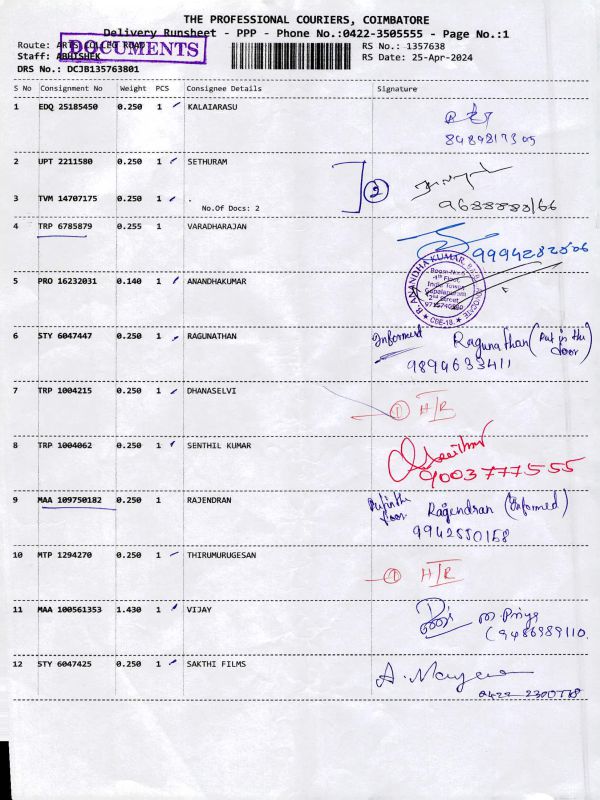 THE PROFESSIONAL COURIERS, COIMBATORE
Delivery Runsheet - PPP - Phone No.:0422-3505555 - Page No.:1
Route: ARTS COLLEG ROAD
DOCUMENTS
RS No.: 1357638
Staff: ABHISHEK
RS Date: 25-Apr-2024
DRS No.: DCJB135763801
S No Consignment No Weight PCS Consignee Details Signature
1 EDQ 25185450 0.250 1 KALAIARASU
2 UPT 2211580 0.250 1 SETHURAM
2
3 TVM 14707175 0.250 1 .
No.Of Docs: 2
4 TRP 6785879 0.255 1 VARADHARAJAN
9994282506
B. ANANDHA KUMAR, B.A.B.L
ADVOCATE
1st Floor,
2nd Street,
CBE-18.
5 PRO 16232031 0.140 1 ANANDHAKUMAR
6 STY 6047447 0.250 1 RAGUNATHAN Informed Ragunathan (Put in the door)
9894633411
7 TRP 1004215 0.250 1 DHANASELVI
1 H/R
8 TRP 1004062 0.250 1 SENTHIL KUMAR
9003777555
9 MAA 109750182 0.250 1 RAJENDRAN Put in the door Ragendran (Informed)
9942550158
10 MTP 1294270 0.250 1 THIRUMURUGESAN
1 H/R
11 MAA 100561353 1.430 1 VIJAY M. Priya
(9486989110
12 STY 6047425 0.250 1 SAKTHI FILMS